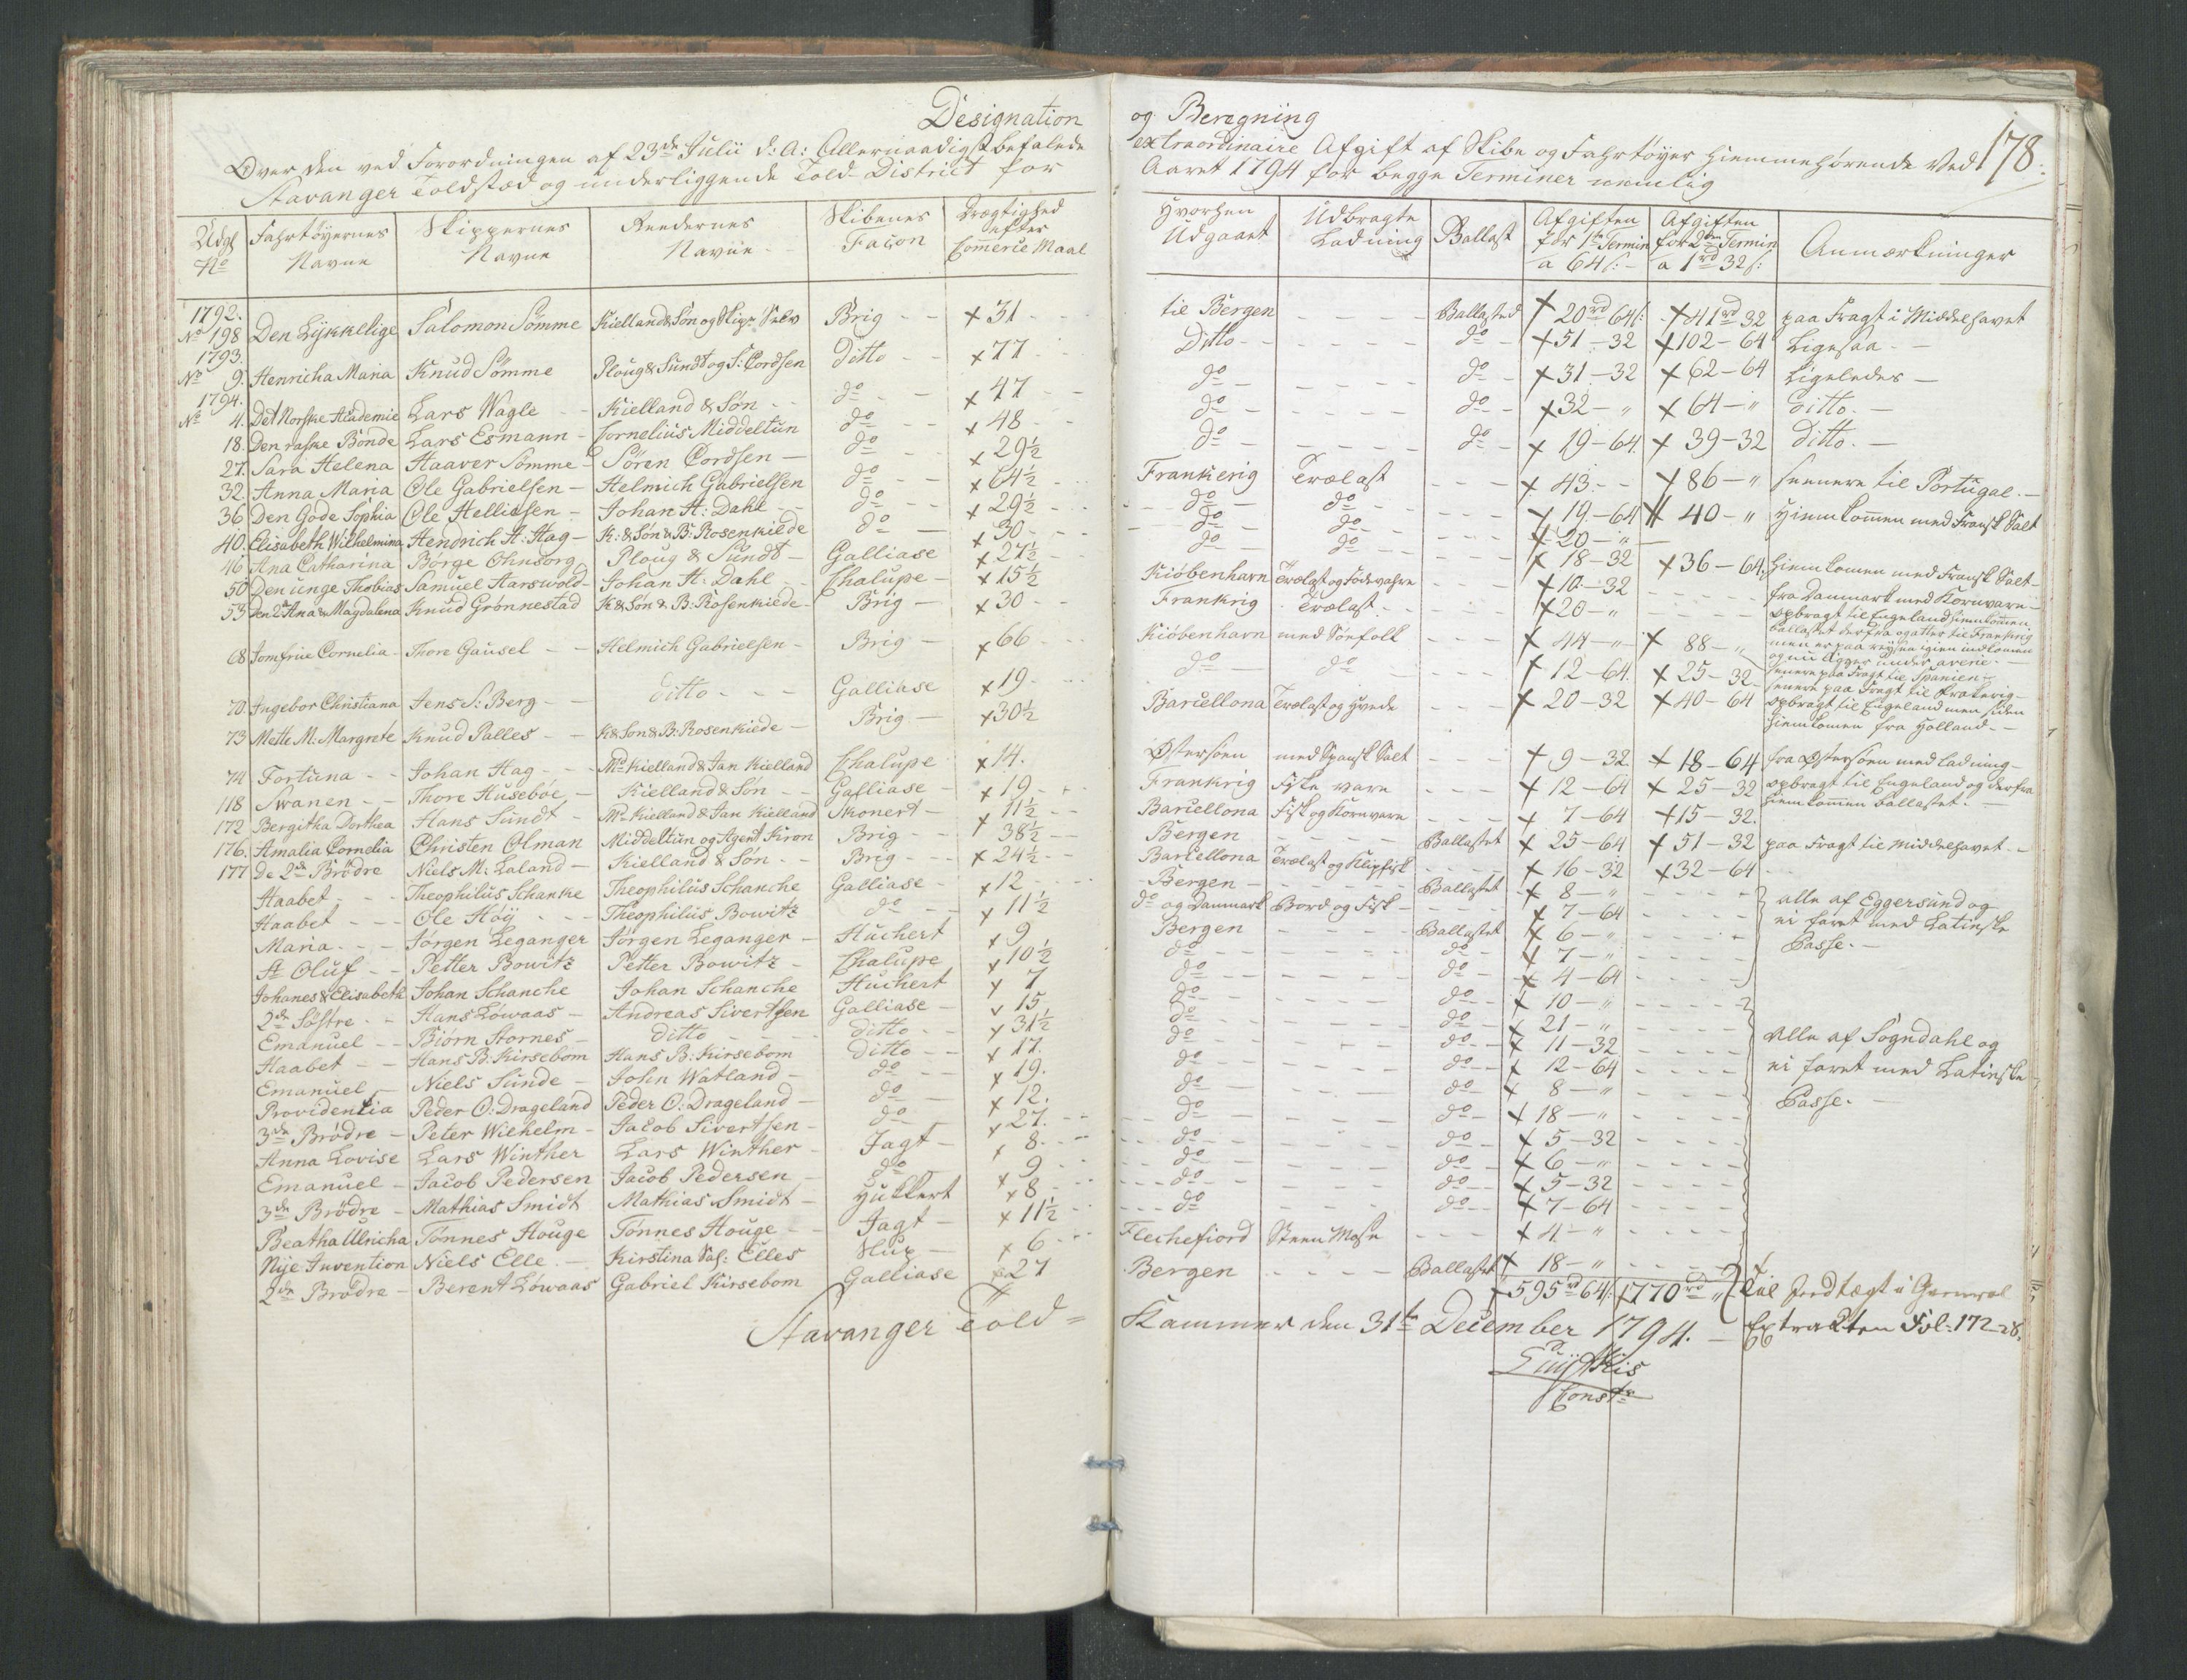 Designation
Over den ved Forordningen af 23de Julii d: A: Allernaadigst befalede
Stavanger Toldstæd og underliggende Told District for
Udgl No | Fahrtøyernes Navne | Skippernes Navne | Reedernes Navne | Skibenes Façon | Drægtighed efter Comerce Maal
1792.
No 198 Den Lykkelige | Salomon Sömme | Kielland & Søn og Skipr Selv | Brig | x 31
1793.
No 9. Henricha Maria | Knud Sömme | Ploug & Sundt og S: Cordsen | Ditto | x 77
1794.
No 4. Det Norske Academie | Lars Wagle | Kielland & Søn | do | x 47
18. Den raske Bonde | Lars Esmann | Cornelius Middeltun | do | x 48
27. Sara Helena | Haaver Sömme | Sören Cordsen | do | x 29½
32. Anna Maria | Ole Gabrielsen | Helmich Gabrielsen | do | x 64½
36 Den Gode Sophia | Ole Helliesen | Johan H: Dahl | do | x 29½
40. Elisabeth Wilhelmina | Hendrich A: Hag | K: & Søn & B: Rosenkilde | do | x 30
46 Ana Catharina | Børge Ohnsorg | Ploug & Sundt | Galliase | x 27½
50 Den unge Thobias | Samuel Aarswold | Johan H: Dahl | Chalupe | x 15½
53 Den 2de Ana & Magdalena | Knud Grønnestad | K & Søn & B: Rosenkiede | Brig | x 30
68 Jomfrue Cornelia | Thore Gausel | Helmich Gabrielsen | Brig | x 66
70. Ingebor Christiana | Jens S: Berg | ditto | Galliase | x 19
73 Mette M: Margrete | Knud Palles | K & Son & B: Rosenkiede | Brig | x 30½
74 Fortuna | Johan Hag | Md Kielland & Jan Kielland | Chalupe | x 14.
118 Swanen | Thore Huseboe | Kielland & Søn | Galliase | x 19
172 Bergitha Dorthea | Hans Sundt | Md Kielland & Jan Kielland | Skonert | x 11½
176. Amalia Cornelia | Christen Olman | Middeltun og Agent Kiron | Brig | x 38½
177 de 2de Brödre | Niels M: Laland | Kielland & Søn | Brig | x 24½
Haabet | Theophilus Schanke | Theophilus Schanche | Galliase | x 12
Haabet | Ole Høy | Theophilus Bowitz | do | x 11½
Maria | Jörgen Leganger | Jörgen Leganger | Huchert | x 9
St Oluf | Petter Bowitz | Petter Bowitz | Chalupe | x 10½
Johanes & Elisabeth | Johan Schanche | Johan Schanche | Huchert | x 7
2de Søstre | Hans Lowaas | Andreas Sivertsen | Galliase | x 15
Emanuel | Biörn Stornes | ditto | ditto | x 31½
Haabet | Hans B: Kirsebom | Hans B: Kirsebom | ditto | x 17.
Emanuel | Niels Sunde | John Watland | do | x 19.
Providentia | Peder O: Drageland | Peder O: Drageland | do | x 12.
3de Brödre | Peter Wilhelm | Jacob Sivertsen | do | x 27.
Anna Lovise | Lars Winther | Lars Winther | Jagt | x 8.
Emanuel | Jacob Pedersen | Jacob Pedersen | do | x 9
3de Brödre | Mathias Smidt | Mathias Smidt | Hukkert | x 8
Beatha Ulricha | Tønnes Houge | Tønnes Houge | Jagt | x 11½
Nye Invention | Niels Elle | Kirstina Sal: Elles | Slup | x 6
2de Brödre | Berent Løwaas | Gabriel Kirsebom | Galliase | x 27
Stavanger Told=
og Beregning
extraordinaire Afgift af Skibe og Fahrtøyer hiemmehørende ved 178.
Aaret 1794 for begge Terminer nemlig
Hvorhen Udgaaet | Udbragte Ladning | Ballast | Afgiften for 1te Termin a 64 s: | Afgiften for 2den Termin a 1rd 32 s: | Anmærkninger
til Bergen | Ballasted | x 20rd 64 s: | x 41rd 32 | paa Fragt i Middelhavet
Ditto | do | x 51-32 | x 102-64 | Ligesaa
do | do | x 31-32 | x 62-64 | Ligeledes
do | do | x 32-" | x 64-" | ditto.
do | do | x 19-64 | x 39-32 | ditto.
Frankerig | Trælast | x 43 | x 86-" | senere til Portugal.
do | do | x 19-64 | x 40-" | hiemkommen med Fransk Salt
do | do | x 20-"
do | do | x 18-32 | x 36-64 | hiemkomen med Fransk Salt
Kiöbenhavn | Trælast og Födevahre | x 10-32 | fra Danmark med Kornvare
Frankrig | Trælast | x 20-" | opbragt til Engeland hiemkommen
ballastet derfra og atter til Frankrig
men er paa reysen igien indkomen
og nu ligger under averie.
Kiöbenhavn | med Söefolk | x 44-" | x 88-" | senere paa Fragt til Spanien
do | do | x 12-64. | x 25-32 | senere paa Fragt til Frakerig
Barcellona | Trælast og Hvede | x 20-32 | x 40-64 | opbragt til Engeland men siden
hiemkomen fra Holland.
Østersöen | med Spansk Salt | x 9-32 | x 18-64 | fra Østersöen med ladning
Frankrig | Fiske vare | x 12-64 | x 25-32 | opbragt til Engeland og derfra
hiemkommen ballastet.
Barcellona | Fisk og Kornvare | x 7-64 | x 15-32.
Bergen | Ballastet | x 25-64 | x 51-32 | paa Fragt til Middelhavet
Barcellona | Trælast og Klipfisk | x 16-32 | x 32-64
Bergen | Ballastet | x 8-" | alle af Eggersund og
do og Danmark | Bord og Fisk | x 7-64 | ei faret med Latinske
Bergen | Ballastet | x 6-" | Passe.
do | do | x 7-"
do | do | x 4-64
do | do | x 10-"
do | do | x 21-" | alle af Sogndahl og
do | do | x 11-32 | ei faret med Latinske
do | do | x 12-64 | Passe.
do | do | x 8-"
do | do | x 18-"
do | do | x 5-32
do | do | x 6-"
do | do | x 5-32
do | do | x 7-64
Flechefiord | Steen Mose | x 4-"
Bergen | Ballastet | x 18-"
x 595rd 64 s: | x 770rd " | Til Indtægt i General
Kammer den 31te December 1794. | Extracten Fol: 172-28.
Const: